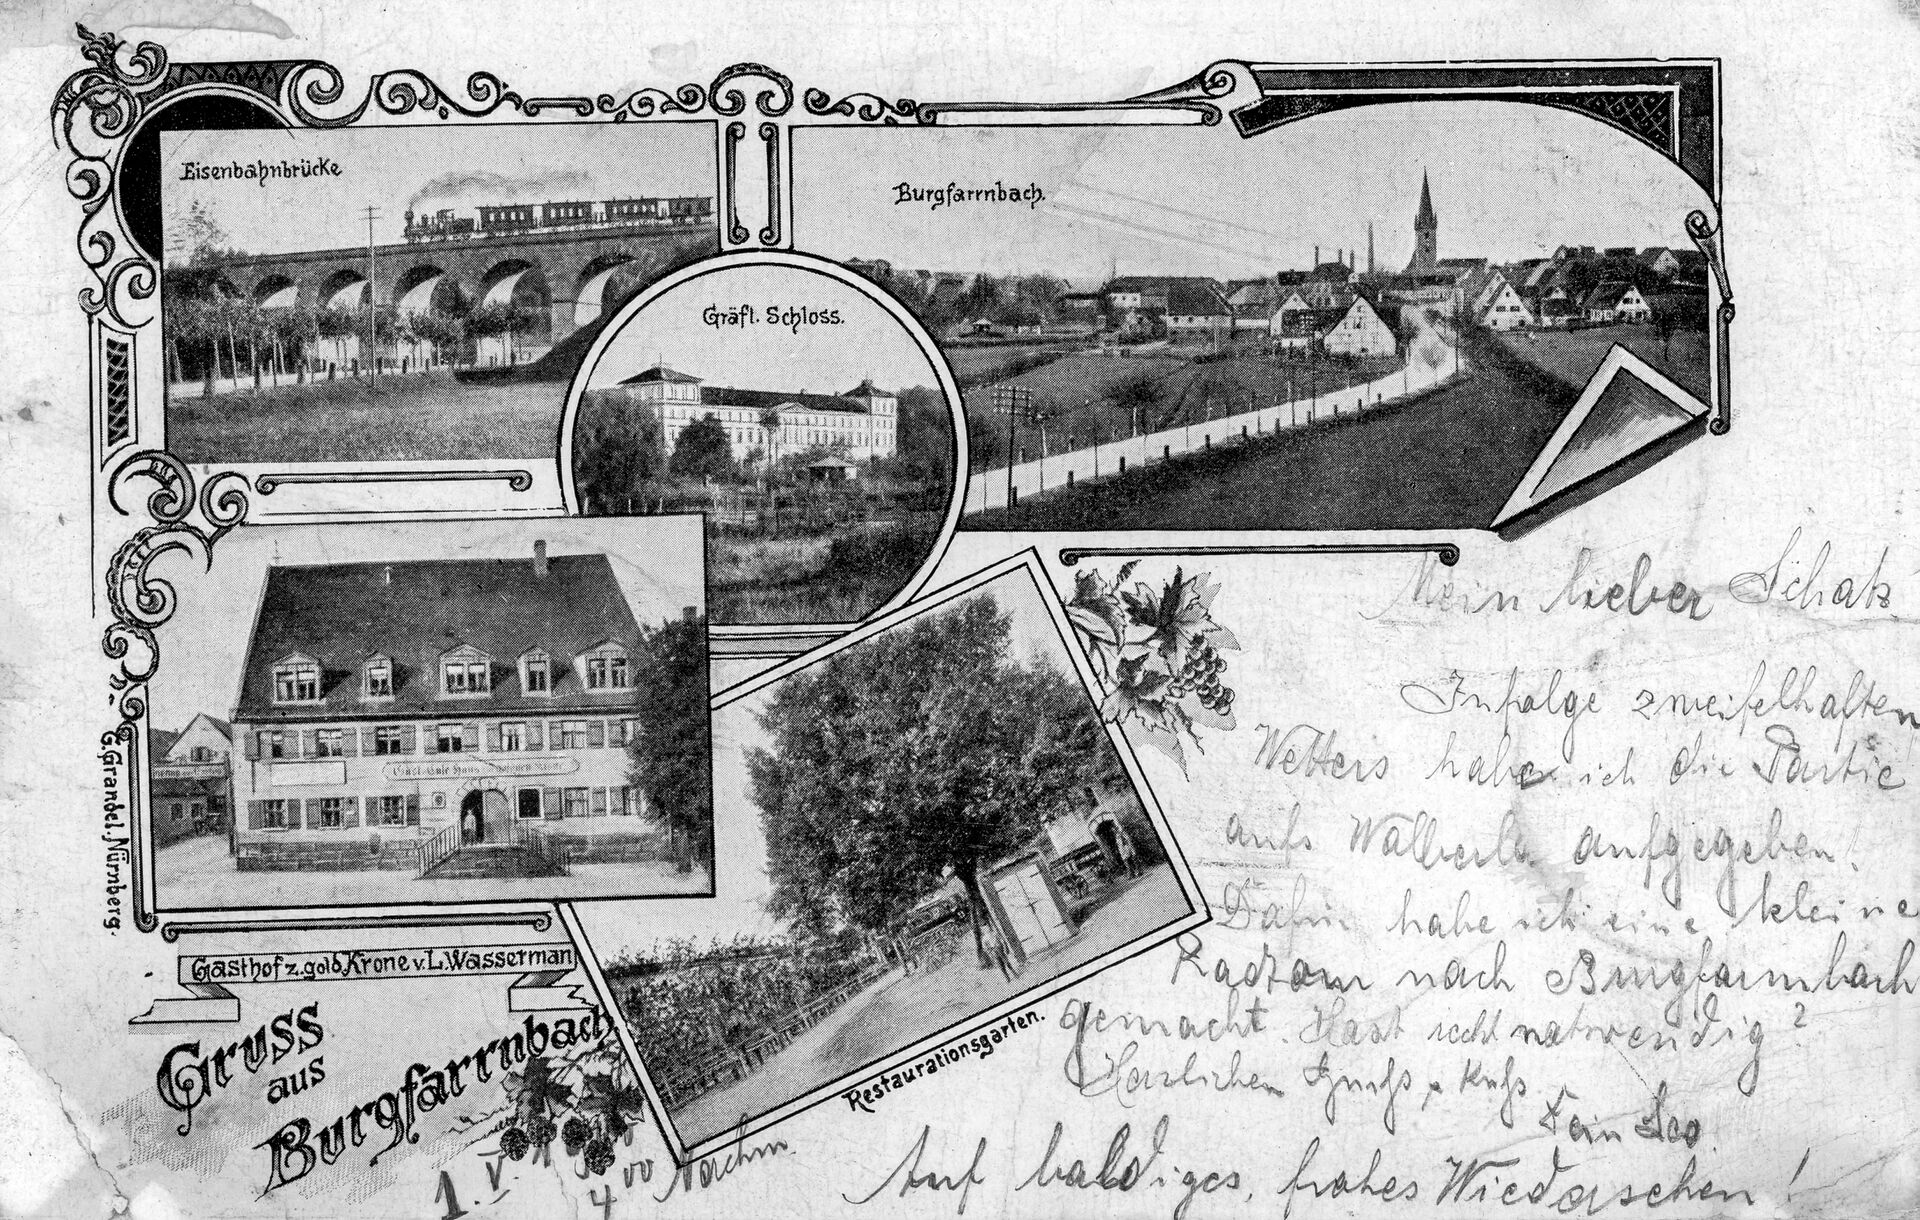 Eisenbahnbrücke
Burgfarrnbach.
Gräfl. Schloss.
G. Grandel, Nürnberg.
Gasthof z. gold. Krone v. L. Wasserman
Gruss
aus
Burgfarrnbach
Restaurationsgarten.
Mein lieber Schatz
Infolge zweifelhaften
Wetters habe ich die Partie
aufs Walberla aufgegeben!
Dafür habe ich eine kleine
Radtour nach Burgfarrnbach
gemacht. Hast recht notwendig?
Herzlichen Gruß u. Kuß
Dein Leo
Auf baldiges, frohes Wiedersehen!
1. V.
4 00 Nachm.